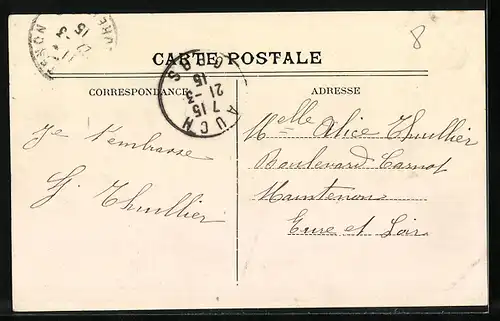 8
CARTE POSTALE
CORRESPONDANCE
ADRESSE
AUCH
7 15
21 - 3
15
GERS
Je t'embrasse
G. Thuillier
Melle Alice Thuillier
Boulevard Carnot
Maintenon
Eure et Loir